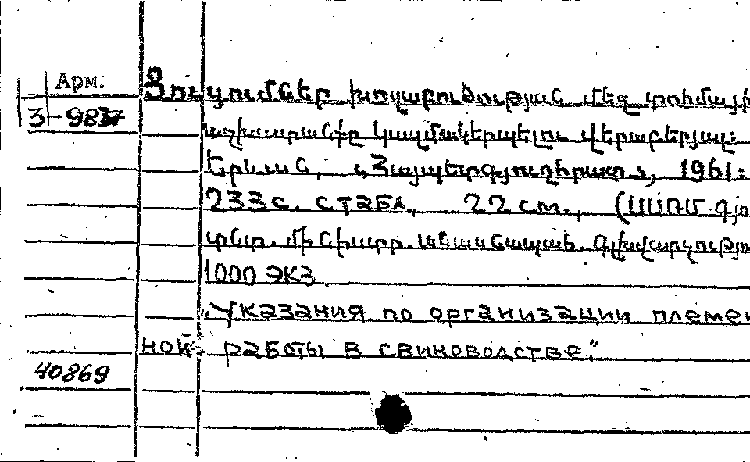 Арм.
3-9837
Ցուցումներ խոզաբուծության մեջ տոհմային
աշխատանքը կազմակերպելու վերաբերյալ:
Երևան, «Հայպետգյուղհրատ», 1961:
233 с. с табл., 22 см., (ՍՍՌՄ. գյու
տնտ. մինիստր. անասնապահ. գլխվարչությու
1000 экз.
„Указания по организации племен
ной работы в свиноводстве."
40869